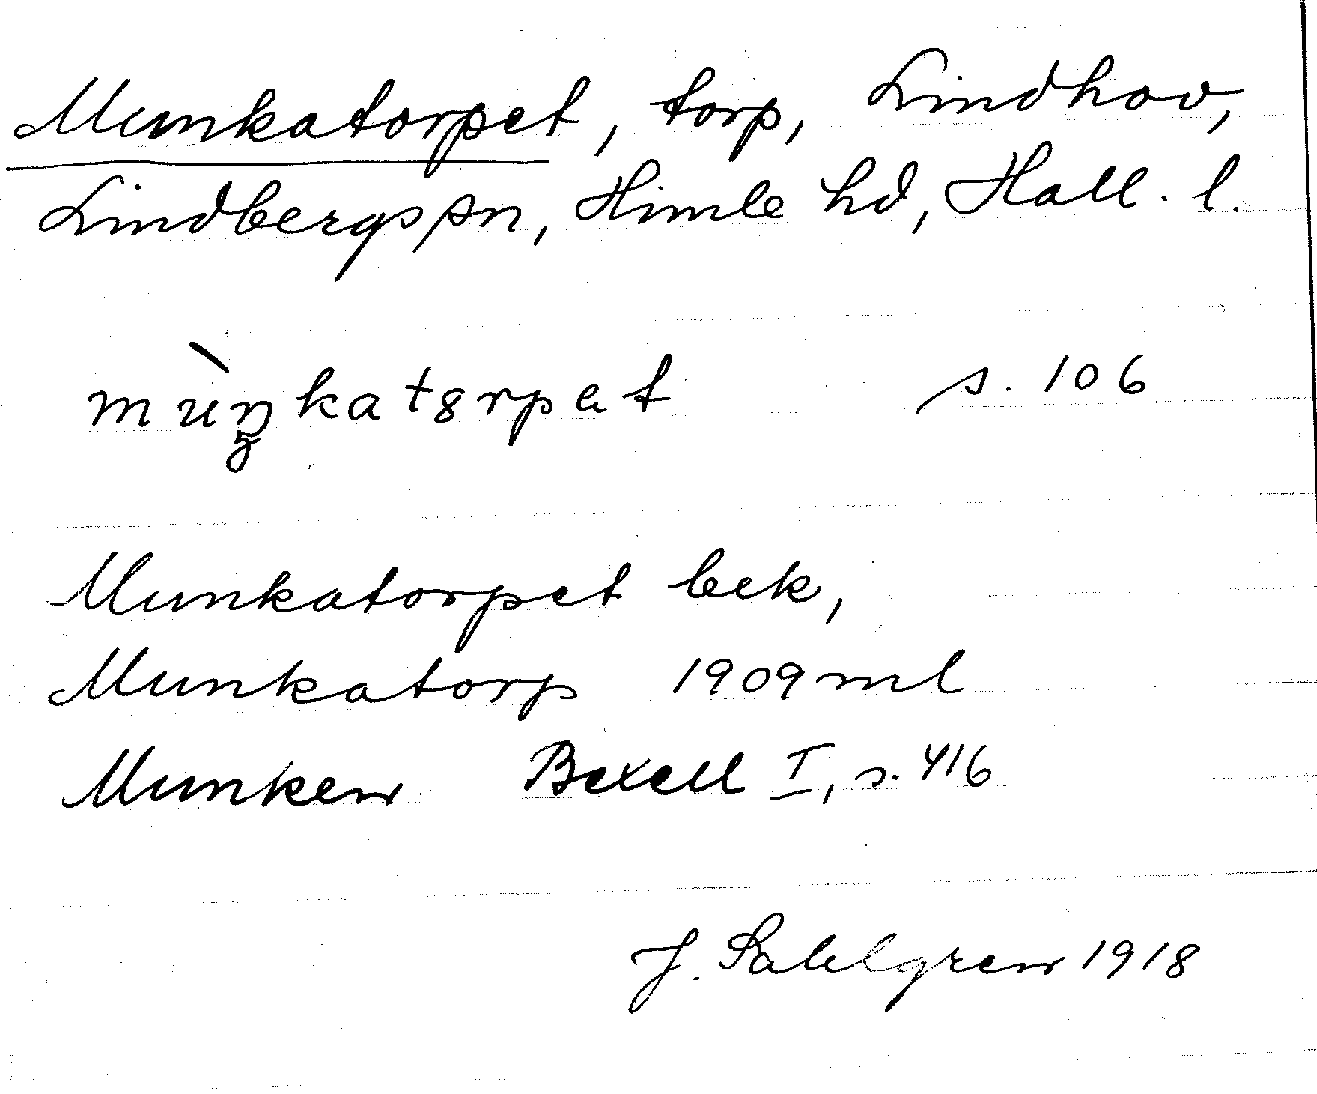 Munkatorpet, torp, Lindhov,
Lindbergs sn, Himle hd, Hall. l.
mùŋkatɞrpat s. 106
Munkatorpet bek,
Munkatorp 1909 ml
Munken Bexell I, s. 416
J. Sahlgren 1918